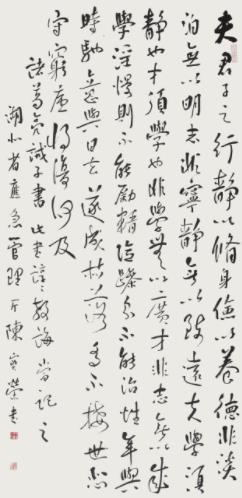 夫君子之行靜以脩身儉以養德非淡
泊無以明志非寧靜無以致遠夫學須
靜也才須學也非學無以廣才非志無以成
學淫慢則不能勵精險躁則不能治性年與
時馳意與日去遂成枯落多不接世悲
守窮廬將復何及
諸葛亮誡子書 此書諄諄教誨當記之
湖北省應急管理厅陳榮書